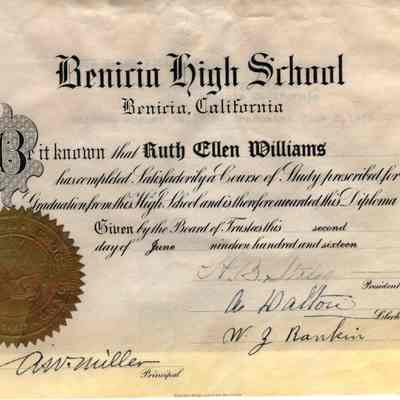 Benicia High School
Benicia, California
Be it known that Ruth Ellen Williams
has completed Satisfactorily a Course of Study prescribed for
Graduation from this High School and is therefore awarded this Diploma
Given by the Board of Trustees this second
day of June nineteen hundred and sixteen
President
A. Dalton
Clerk
W. J. Rankin
A.W. Miller
Principal